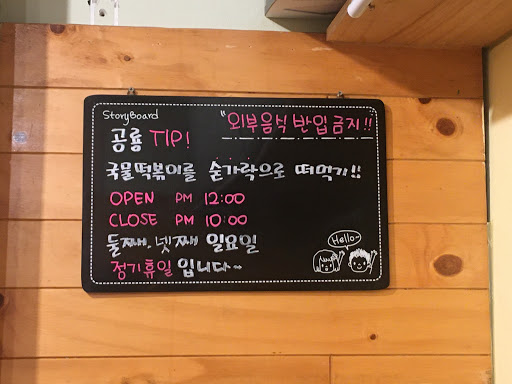 StoryBoard
"외부음식 반입금지!!
공룡 TIP!
국물떡볶이를 숟가락으로 떠먹기!!
OPEN PM 12:00
CLOSE PM 10:00
둘째, 넷째 일요일
정기휴일 입니다~
Hello~